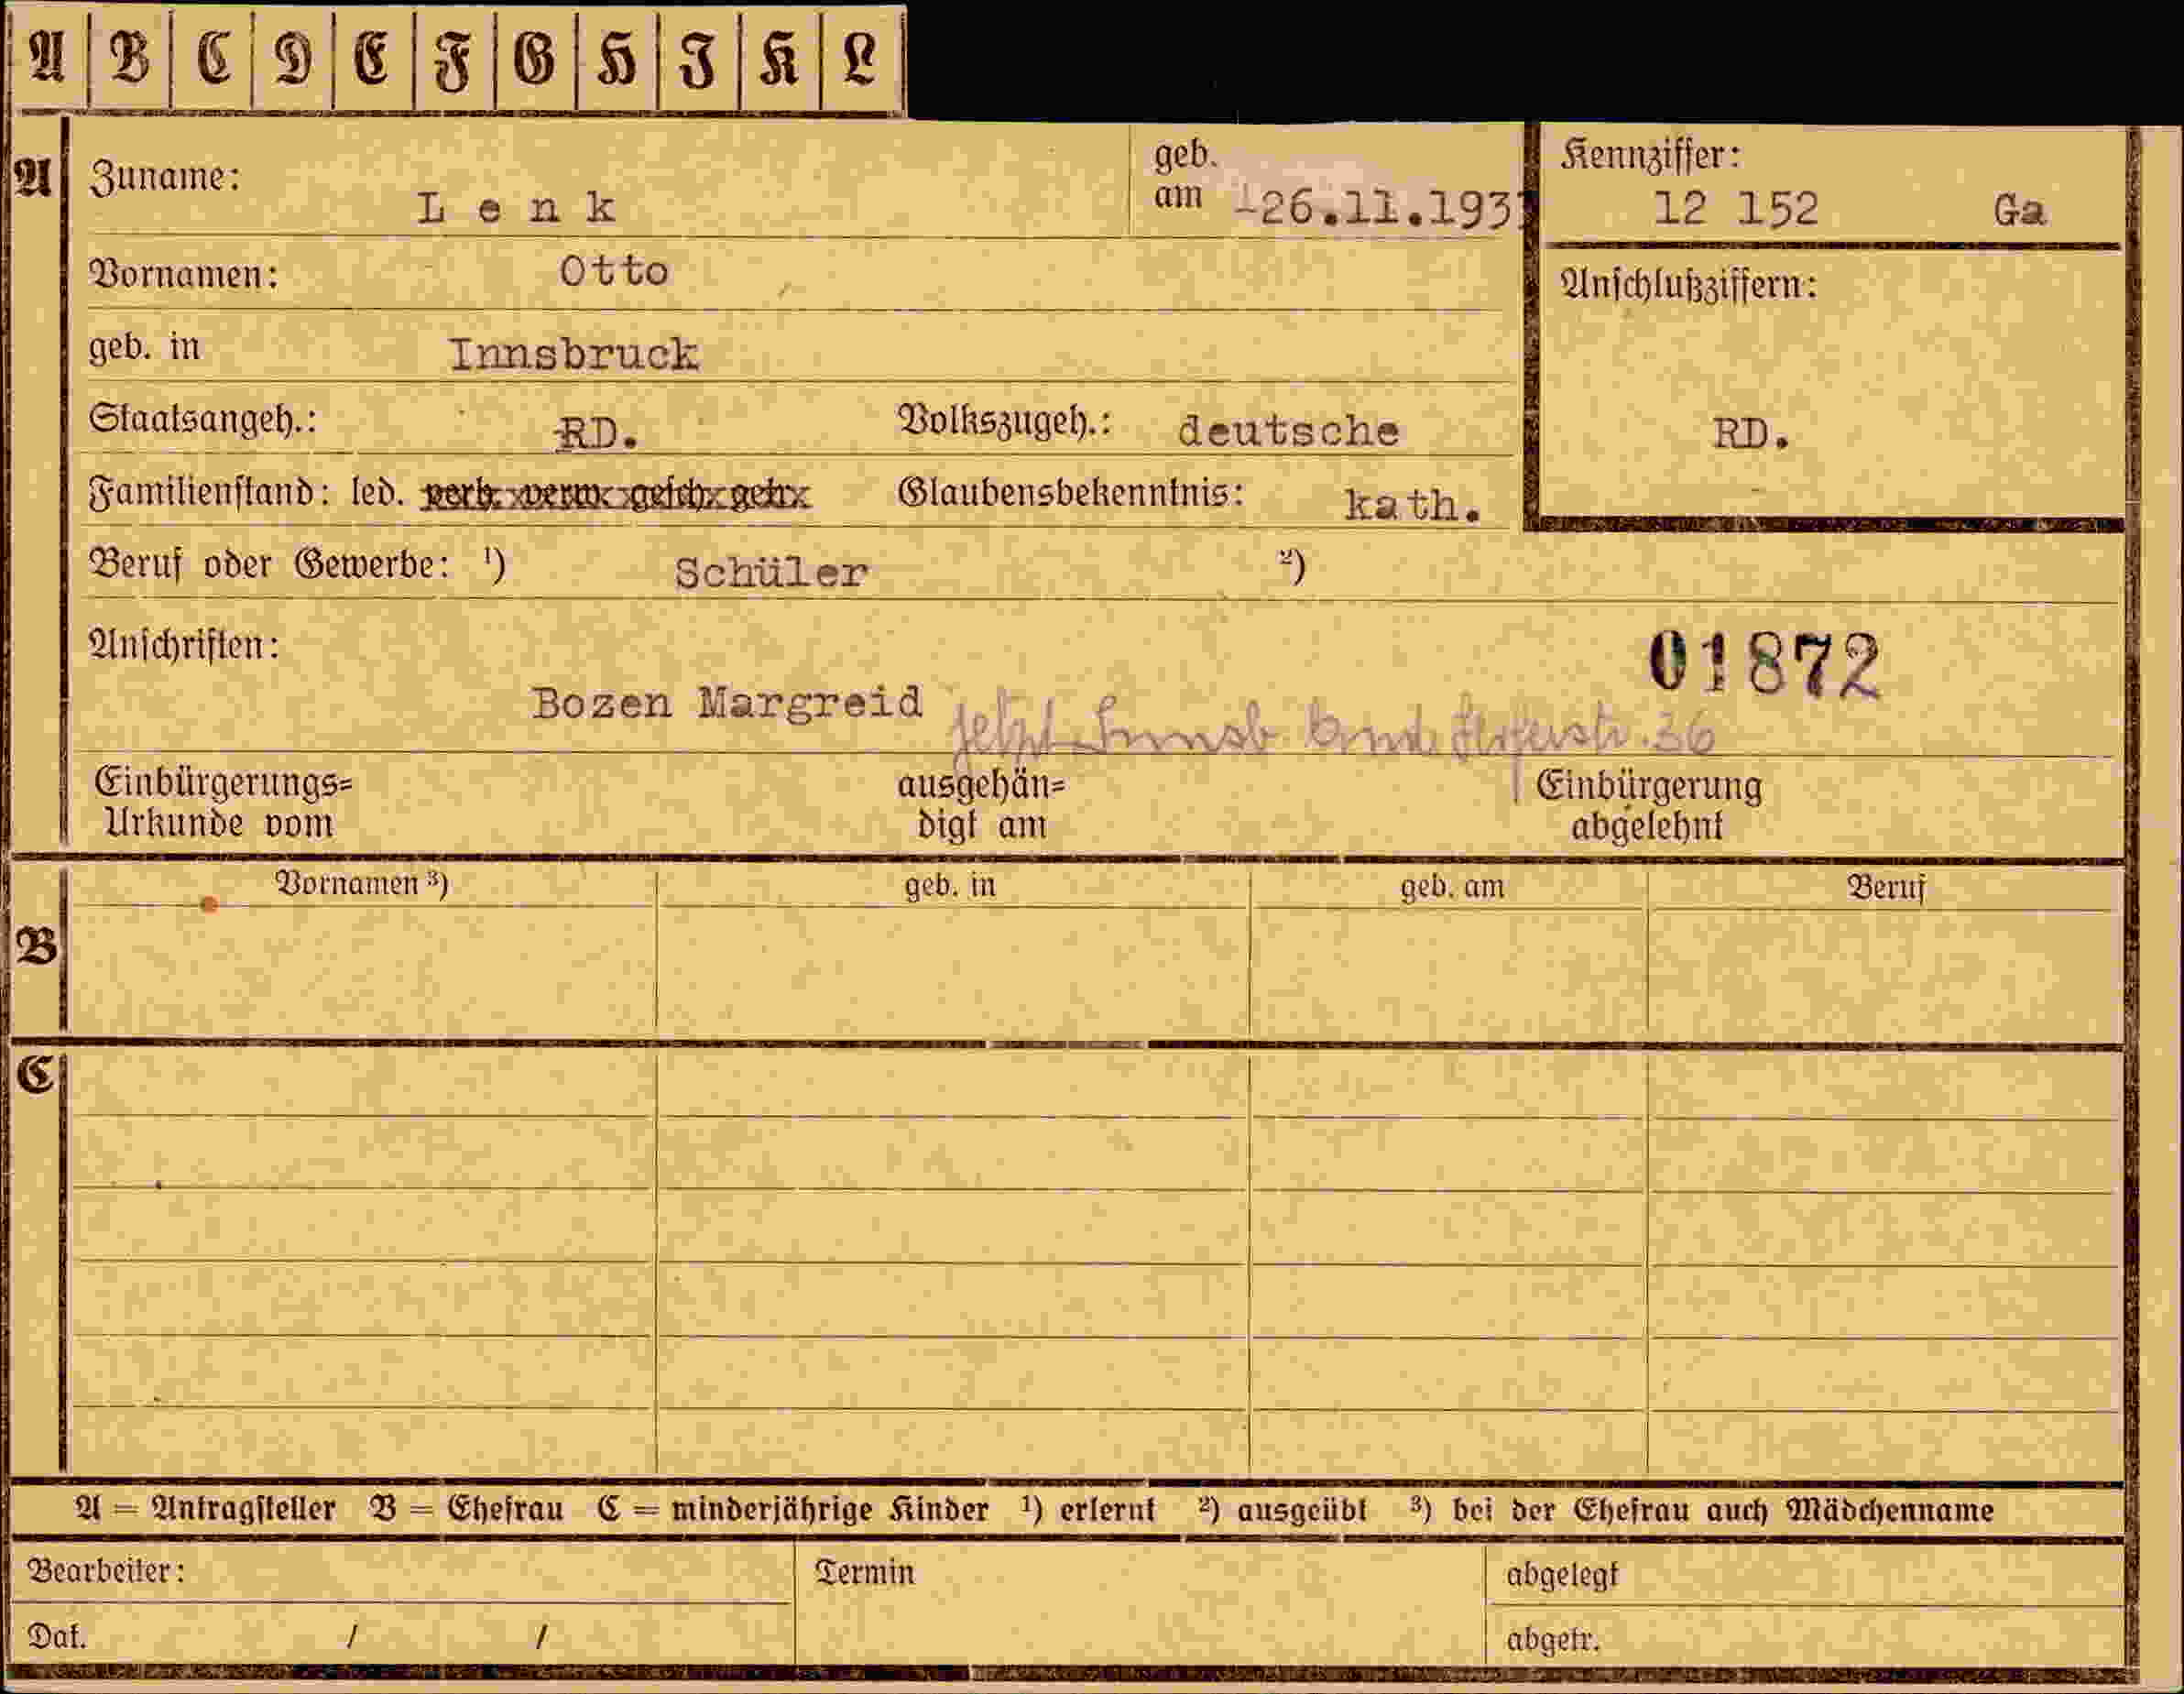 A B C D E F G H J K L
A Zuname: Lenk geb. am 26.11.193 Kennziffer: 12 152 Ga
Vornamen: Otto Anschlußziffern:
geb. in Innsbruck
Staatsangeh.: RD. Volkszugeh.: deutsche RD.
Familienstand: led. verh. verw. gesch. getr. Glaubensbekenntnis: kath.
Beruf oder Gewerbe: ¹) Schüler ²)
Anschriften: 01872
Bozen Margreid jetzt Innsb 36
Einbürgerungs= ausgehän= Einbürgerung
Urkunde vom digt am abgelehnt
Vornamen ³) geb. in geb. am Beruf
B
C
A = Antragsteller B = Ehefrau C = minderjährige Kinder ¹) erlernt ²) ausgeübt ³) bei der Ehefrau auch Mädchenname
Bearbeiter: Termin abgelegt
Dat. / / abgetr.